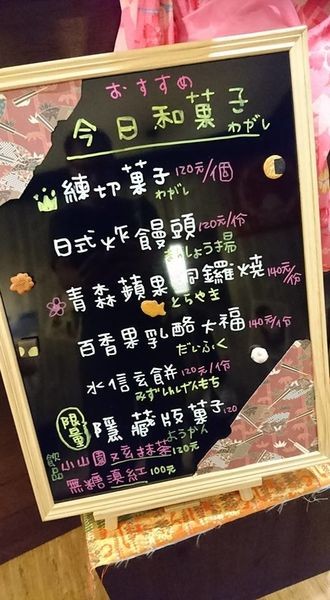 おすすめ
今日和菓子
わがし
練切菓子120元/個
わがし
日式炸饅頭120元/份
しょう揚
青森蘋果銅鑼燒140元/份
とらやき
百香果乳酪大福140元/份
だいふく
水信玄餅120元/份
みずしんげんもち
限量 隱藏版菓子120
ようかん
飲品 小山園又玄抹茶120元
無糖滇紅100元